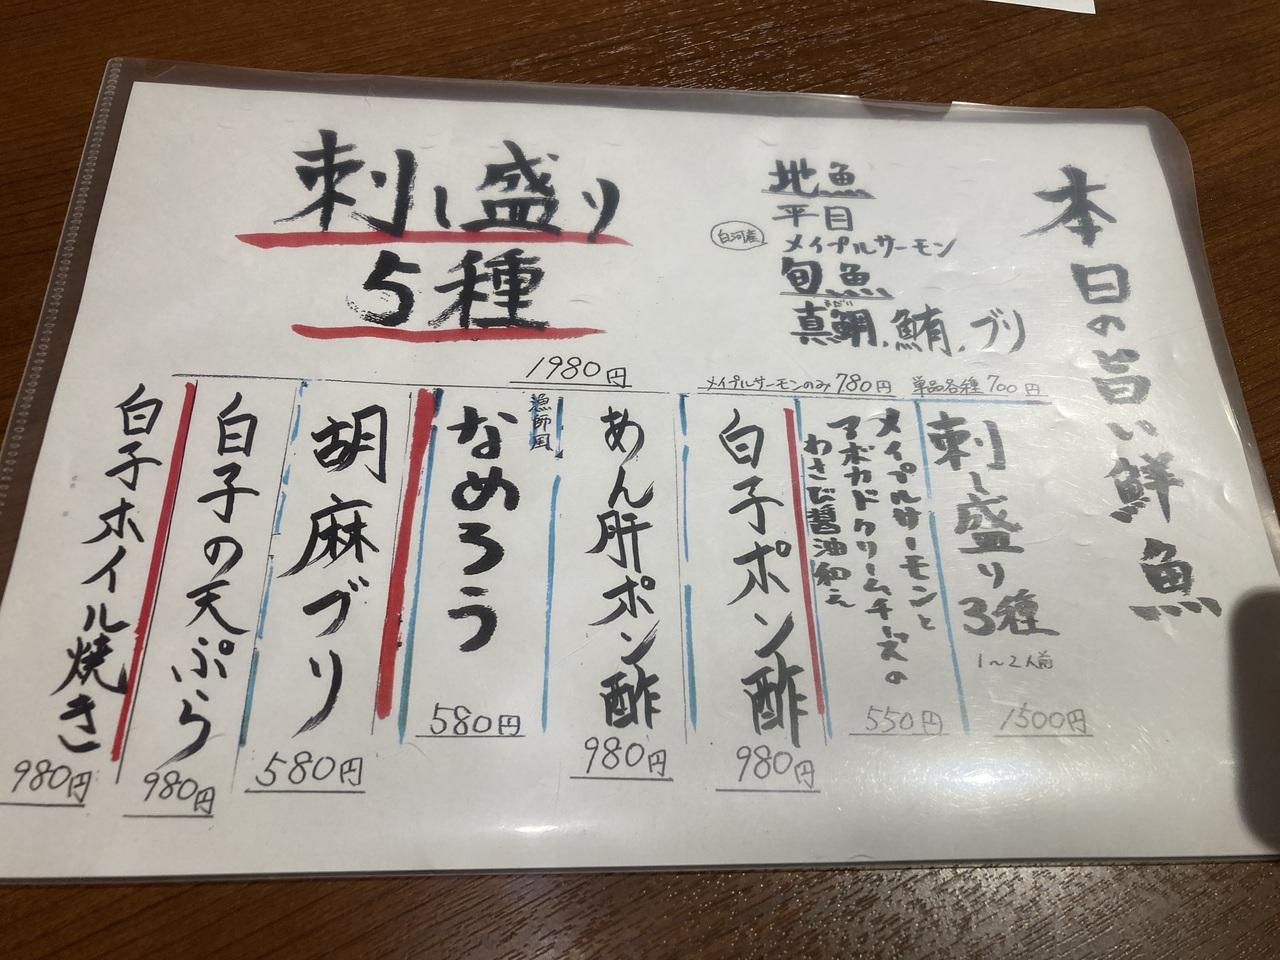 本日の旨い鮮魚
地魚
平目
白河産
メイプルサーモン
旬魚
まだい
真鯛、鮪、ブリ
メイプルサーモンのみ780円
単品各種700円
刺し盛り
5種
1980円
刺し盛り3種
1〜2人前
1500円
メイプルサーモンと
アボカドクリームチーズの
わさび醤油和え
550円
白子ポン酢
980円
あん肝ポン酢
980円
漁師風
なめろう
580円
胡麻ブリ
580円
白子の天ぷら
980円
白子ホイル焼き
980円